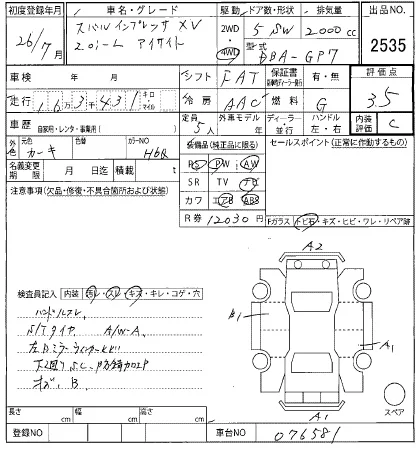 初度登録年月
車名・グレード
駆動
ドア数・形状
排気量
出品NO.
26/7月
スバル インプレッサ XV
2.0i-L アイサイト
2WD
4WD
5 SW
2000cc
型式
DBA-GP7
2535
車検 年 月
シフト FAT
保証書
有・無
評価点
3.5
走行 16万3千431 キロ マイル
冷房 AAC
燃料 G
車歴 自家用・レンタ・事業用( )
定員 5人
外車モデル 年
ディーラー・並行
ハンドル 左・右
内装評価 C
外色 元色 カーキ 色替 カラーNO H6Q
装備品(純正品に限る)
セールスポイント(正常に作動するもの)
名義変更期限 月 日迄 積載 t
PS PW AW
SR TV ナビ
カワ エアB ABS
注意事項(欠品・修復・不具合箇所および状態)
R券 12030円
Fガラス トビ石・キズ・ヒビ・ワレ・リペア跡
A2
検査員記入 内装 汚レ・スレ・キズ・キレ・コゲ・穴
ハンドルスレ
S/Tタイヤ A/W-A
A1
下廻りS.C. 防錆加工P
B
スペア
A1
長さ cm 幅 cm 高さ cm
登録NO
車台NO 076581